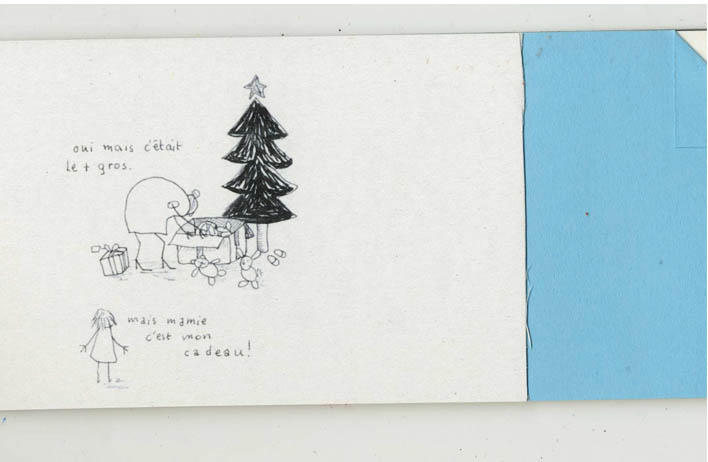 oui mais c'était
le + gros.
mais mamie
c'est mon
cadeau!